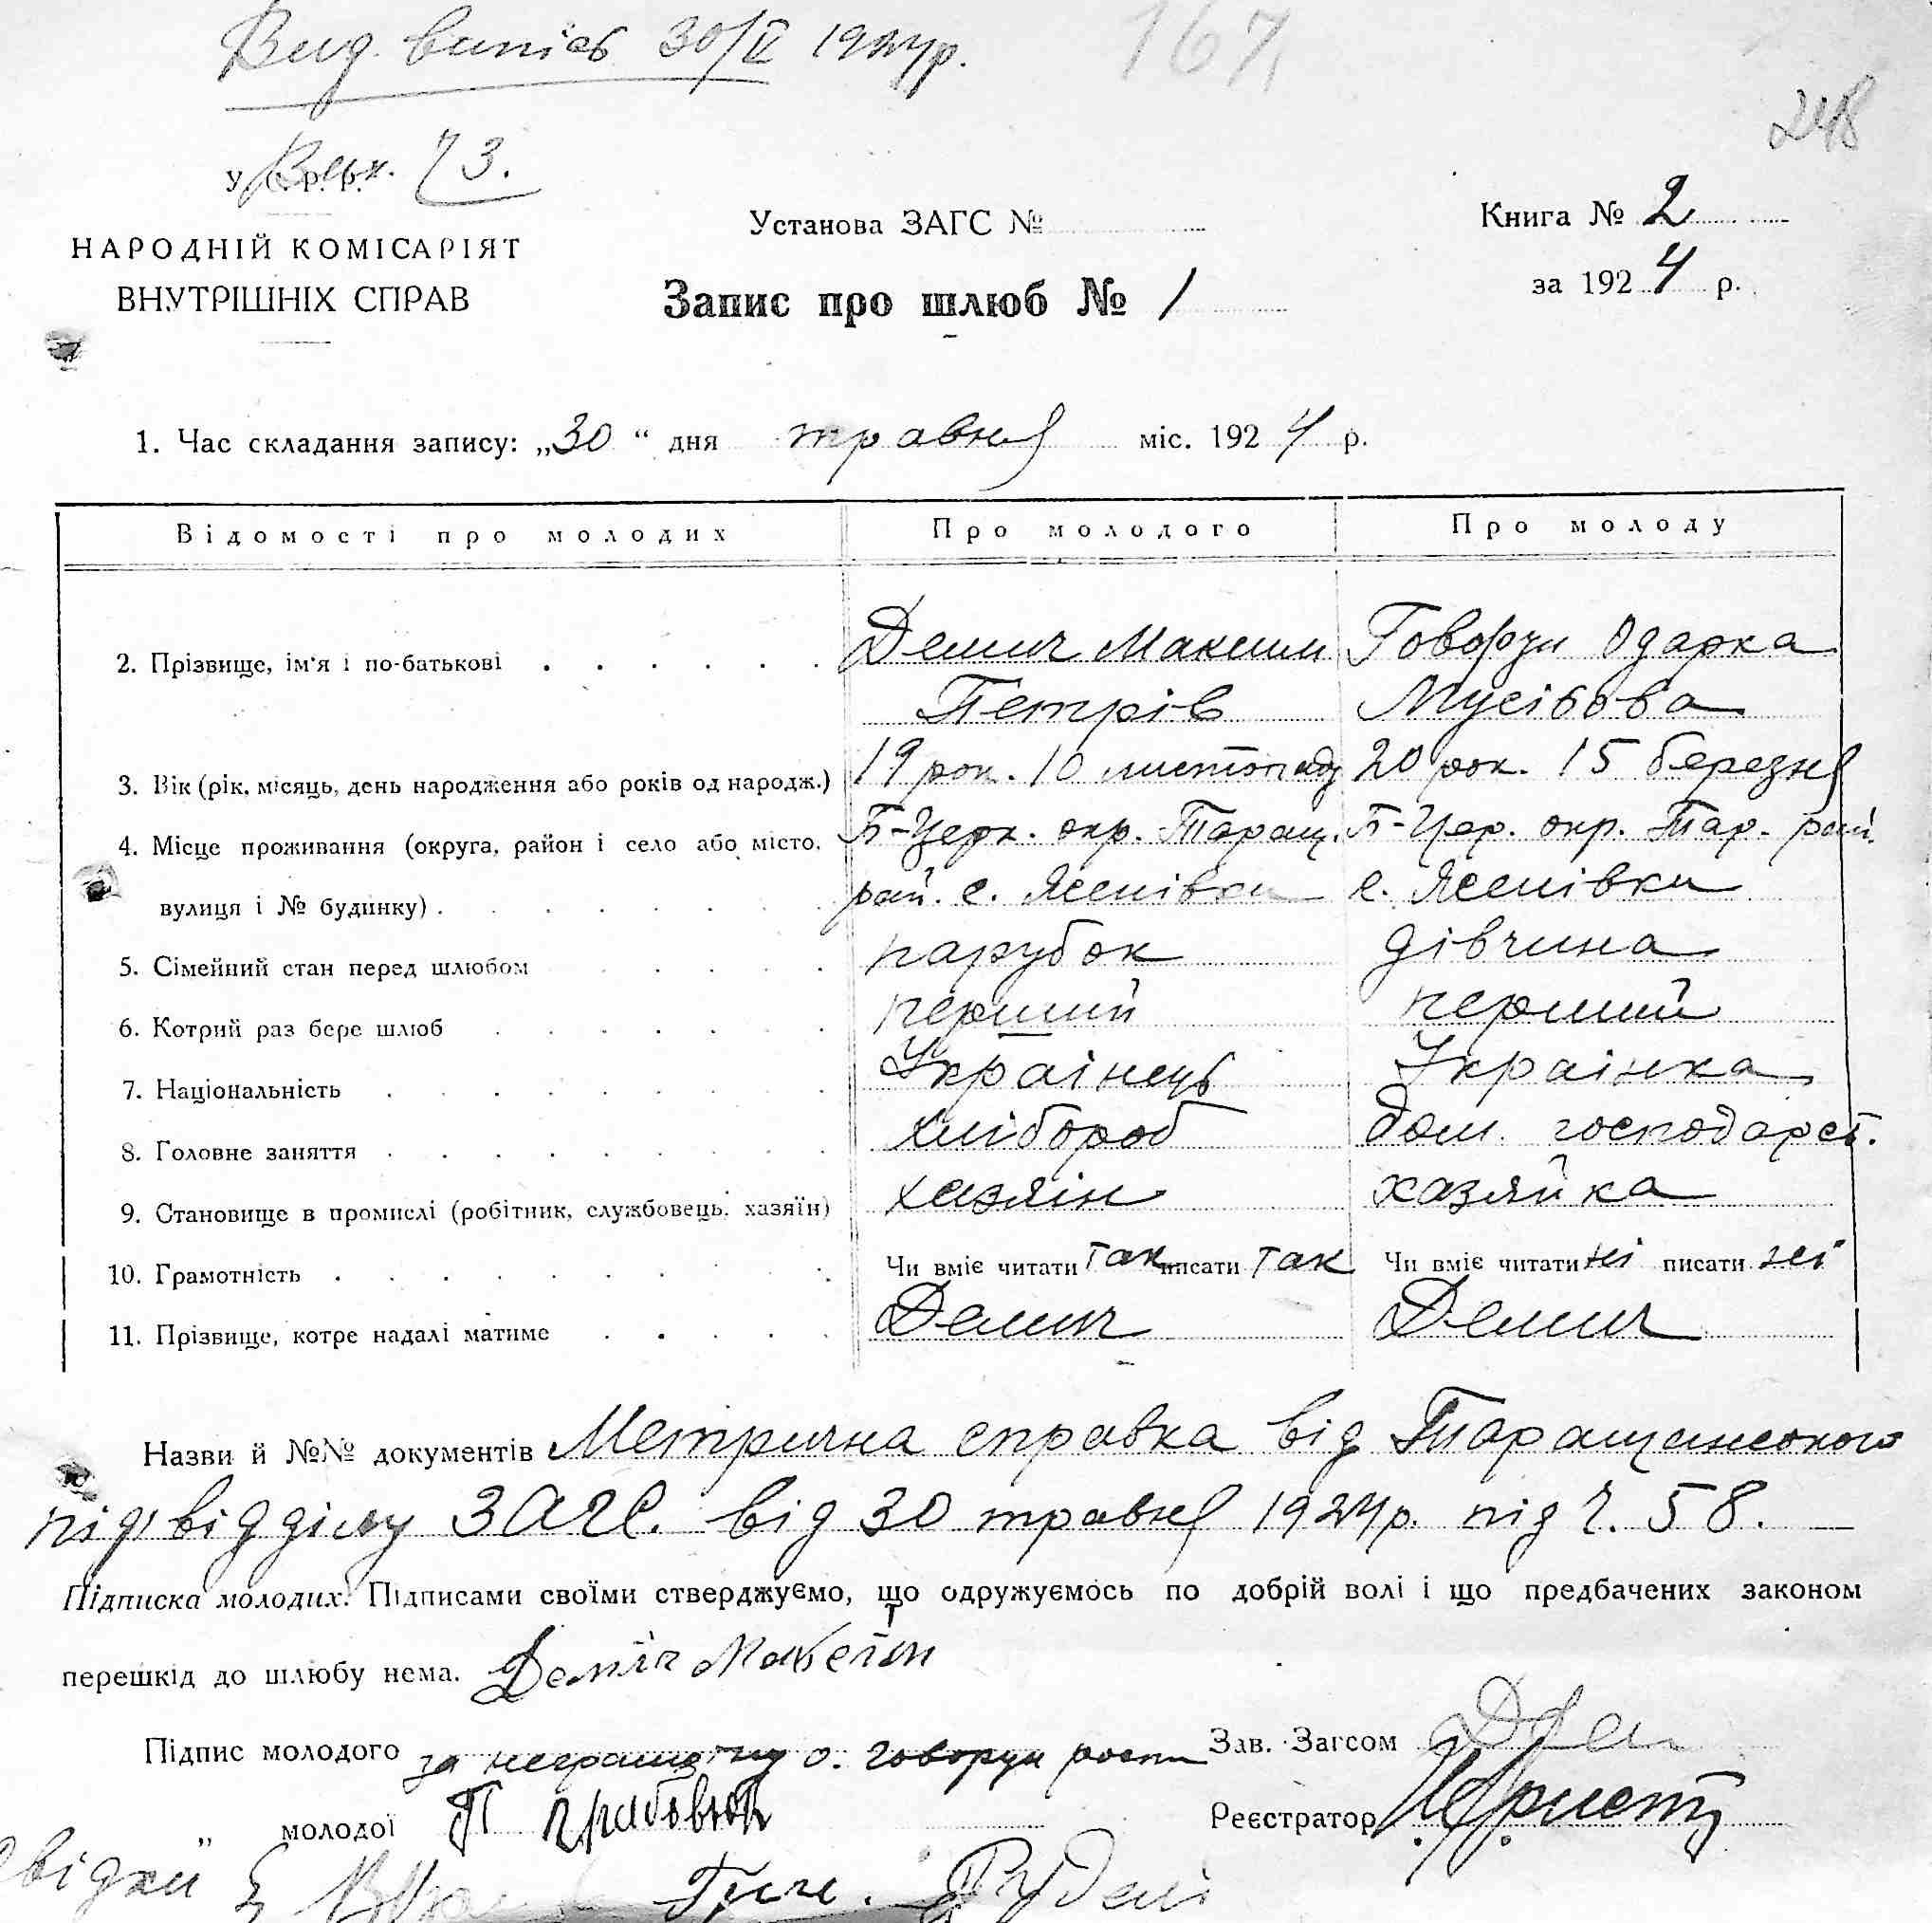 Вид. випісь 30/V 1924р.
167
248
У. С. Р. Р.
73.
НАРОДНІЙ КОМІСАРІЯТ
ВНУТРІШНІХ СПРАВ
Установа ЗАГС №
Запис про шлюб № 1
Книга № 2
за 1924 р.
1. Час складання запису: „30“ дня травня міс. 1924 р.
Відомості про молодих Про молодого Про молоду
2. Прізвище, ім'я і по-батькові Демич Максим Говорун Одарка
Петрів Мусієва
3. Вік (рік, місяць, день народження або років од народж.) 19 рок. 10 листопаду 20 рок. 15 березня
4. Місце проживання (округа, район і село або місто, Б-Церк. окр. Таращ. Б-Цер. окр. Тар. рай.
вулиця і № будинку) рай. с. Ясенівки с. Ясенівки
5. Сімейний стан перед шлюбом парубок дівчина
6. Котрий раз бере шлюб перший перший
7. Національність Українець Українка
8. Головне заняття хлібороб дом. господарст.
9. Становище в промислі (робітник, службовець, хазяїн) хазяїн хазяйка
10. Грамотність Чи вміє читати так писати так Чи вміє читати ні писати ні
11. Прізвище, котре надалі матиме Демич Демич
Назви й №№ документів Метрична справка від Таращанського
підвідділу ЗАГС. від 30 травня 1924р. під ч. 58.
Підписка молодих. Підписами своїми стверджуємо, що одружуємось по добрій волі і що предбачених законом
перешкід до шлюбу нема. Деміч Максим
Підпис молодого за неграмотну О. Говорун
Зав. Загсом
„ молодої П
Реєстратор
Свідки